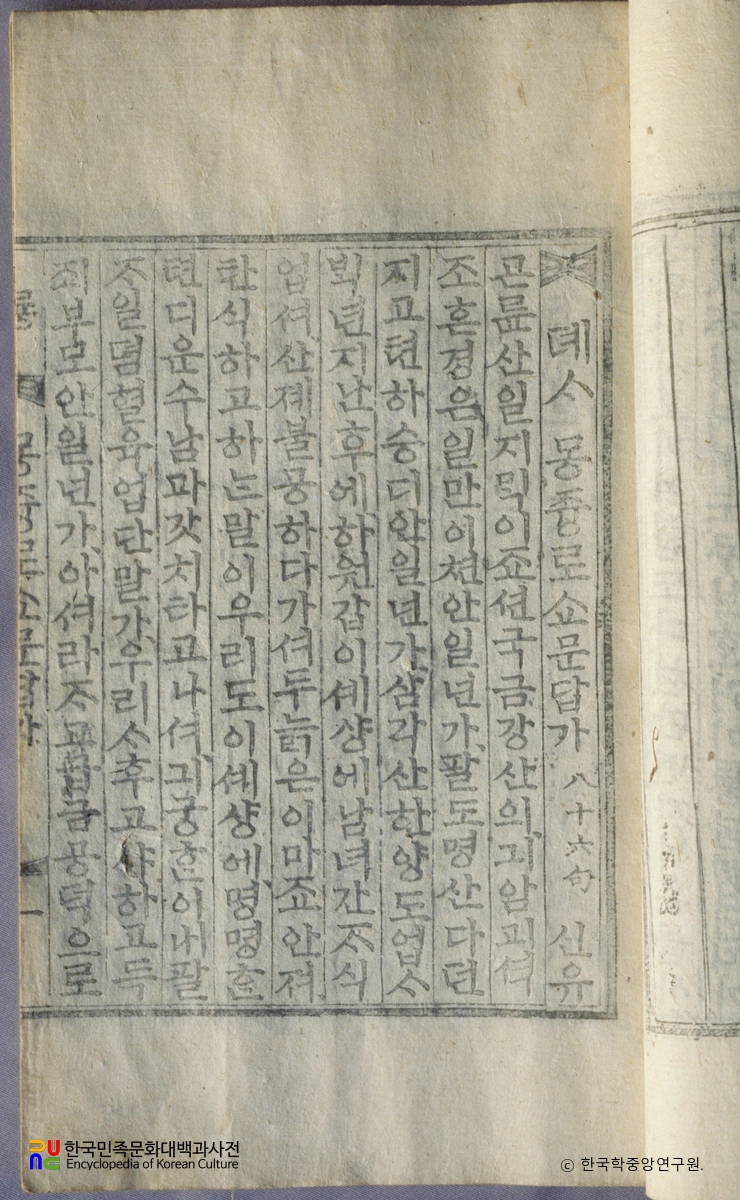 뎨ᄉᆞ 몽즁로쇼문답가 八十六句 신유
곤륜산일지ᄆᆡᆨ이죠션국금강산의긔암괴셕
조흔경은일만이쳔안일년가팔도명산다던
지고텬하승디안일년가삼각산한양도업ᄉᆞ
ᄇᆡᆨ년지난후에하원갑이셰샹에남녀간ᄌᆞ식
업셔산졔불공하다가셔두늙은이마죠안져
탄식하고하ᄂᆞᆫ말이우리도이셰샹에명명ᄒᆞᆫ
텬디운수남과갓치타고나셔긔궁ᄒᆞᆫ이ᄂᆡ팔
ᄌᆞ일뎜혈육업단말가우리ᄉᆞ후고샤하고득
죄부모안일년가아셔라ᄌᆞ고급금공덕으로
一
한국민족문화대백과사전
Encyclopedia of Korean Culture
© 한국학중앙연구원.